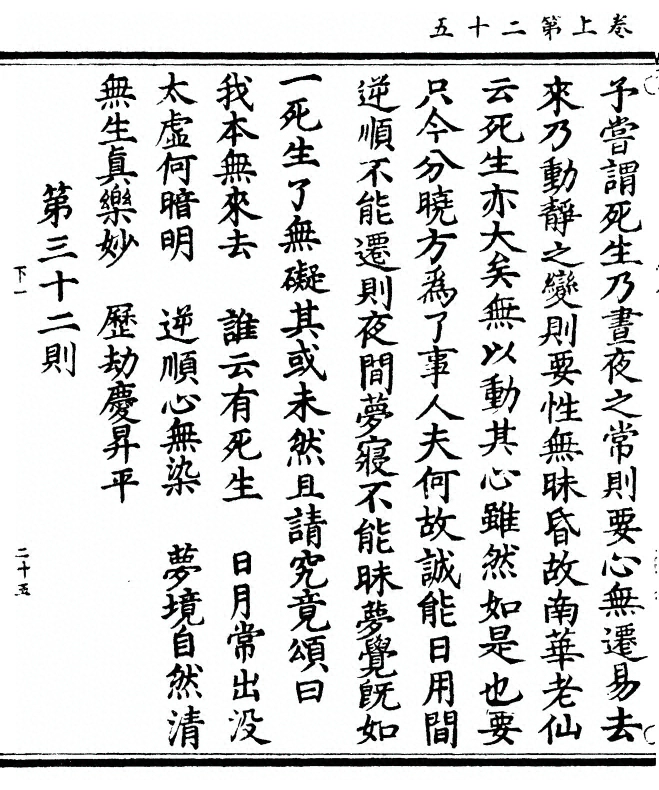 卷上第二十五
予嘗謂死生乃晝夜之常則要心無遷易去
來乃動靜之變則要性無昧昏故南華老仙
云死生亦大矣無以動其心雖然如是也要
只今分曉方為了事人夫何故誠能日用間
逆順不能遷則夜間夢寢不能昧夢覺旣如
一死生了無礙其或未然且請究竟頌曰
我本無來去　誰云有死生　日月常出沒
太虛何暗明　逆順心無染　夢境自然清
無生眞樂妙　歷劫慶昇平
第三十二則
下一
二十五